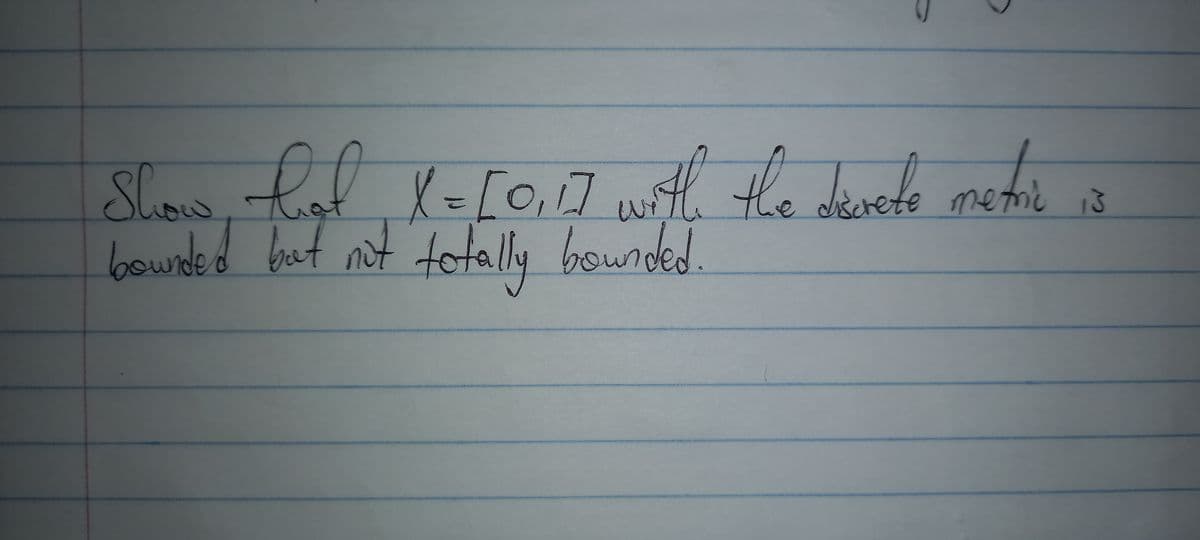 Show that X = [0,1] with the discrete metric is
bounded but not totally bounded.